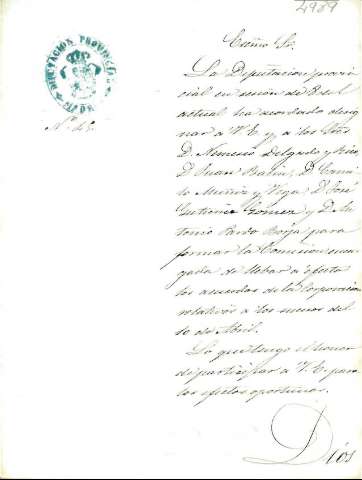 4989
DIPUTACION PROVINCIAL
Exmo Sr.
La Diputacion provin
cial en sesion de 3 del
actual ha acordado desig
nar a V. E. y a los Sres
D. Nemesio Delgado y Rico,
D. Juan D. Cami
lo Muñiz y Vega, D. José
Gutierrez Gomez y D. An
tonio Pardo Borja para
formar la Comision encar
gada de llebar a efecto
los acuerdos de la Corporacion
relativos a los sucesos del
10 de Abril.
Lo que tengo el honor
de participar a V. E. para
los efectos oportunos.
Dios